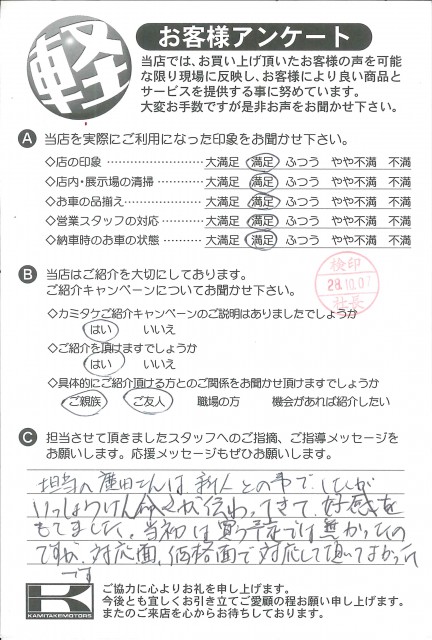 軽
お客様アンケート
当店では、お買い上げ頂いたお客様の声を可能
な限り現場に反映し、お客様により良い商品と
サービスを提供する事に努めています。
大変お手数ですが是非お声をお聞かせ下さい。
A 当店を実際にご利用になった印象をお聞かせ下さい。
◇店の印象 ………………… 大満足 満足 ふつう やや不満 不満
◇店内・展示場の清掃 ………… 大満足 満足 ふつう やや不満 不満
◇お車の品揃え ………………… 大満足 満足 ふつう やや不満 不満
◇営業スタッフの対応 ………… 大満足 満足 ふつう やや不満 不満
◇納車時のお車の状態 ………… 大満足 満足 ふつう やや不満 不満
B 当店はご紹介を大切にしております。
ご紹介キャンペーンについてお聞かせ下さい。
検印
28.10.07
社長
◇カミタケご紹介キャンペーンのご説明はありましたでしょうか
はい いいえ
◇ご紹介を頂けますでしょうか
はい いいえ
◇具体的にご紹介頂ける方とのご関係をお聞かせ頂けますでしょうか
ご親族 ご友人 職場の方 機会があれば紹介したい
C 担当させて頂きましたスタッフへのご指摘、ご指導メッセージを
お願いします。応援メッセージもぜひお願いします。
担当の廣田さんは、新人との事でしたが
いっしょうけん命さが伝わってきて、好感を
もてました。当初は買う予定では無かったの
ですが、対応面、価格面で対応して頂いてよかった
です
K
KAMITAKEMOTORS
ご協力に心よりお礼を申し上げます。
今後とも宜しくお引き立てご愛顧の程お願い申し上げます。
またのご来店を心からお待ちしております。